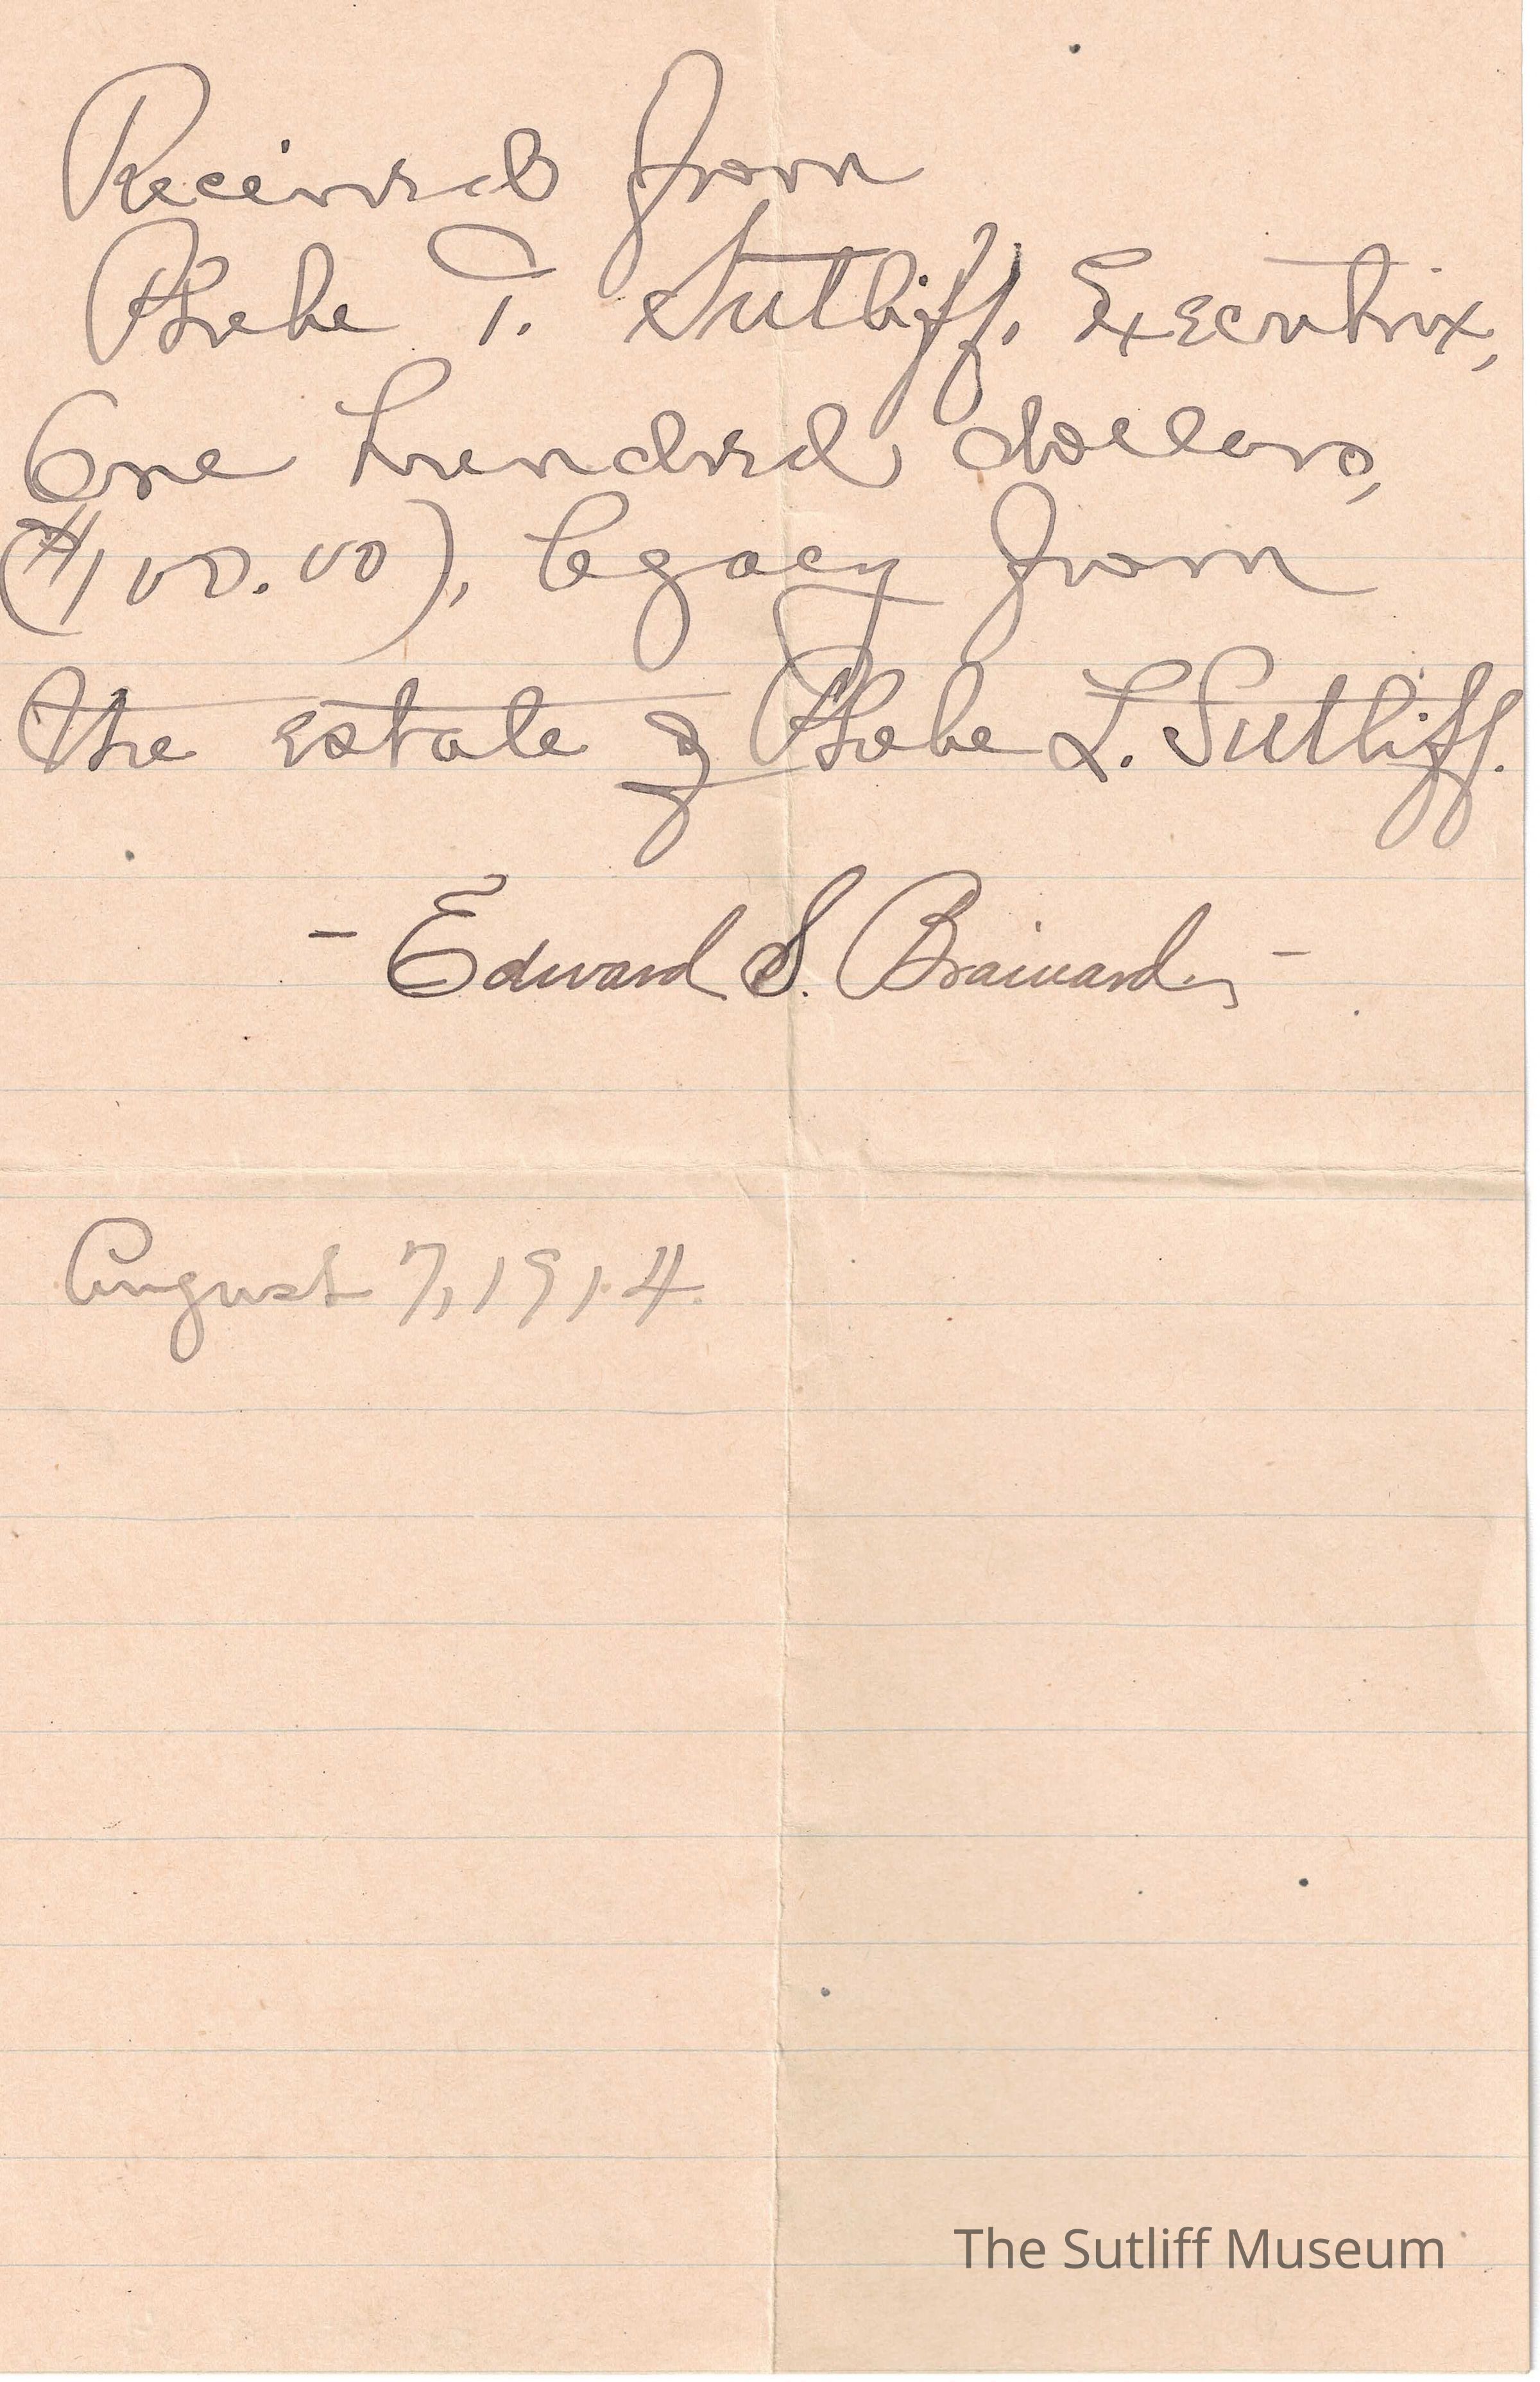 Received from
Phebe T. Sutliff, Executrix,
One hundred dollars,
($100.00), legacy from
the estate of Phebe L. Sutliff.
- Edward S. Brainard, -
August 7, 1914.
The Sutliff Museum